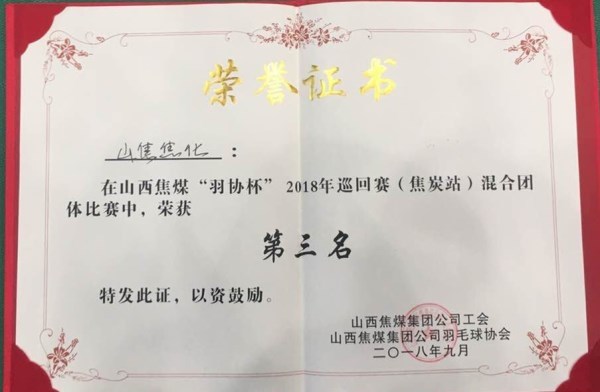 荣誉证书
山焦焦化：
在山西焦煤“羽协杯” 2018年巡回赛（焦炭站）混合团
体比赛中，荣获
第三名
特发此证，以资鼓励。
山西焦煤集团公司工会
山西焦煤集团公司羽毛球协会
二〇一八年九月